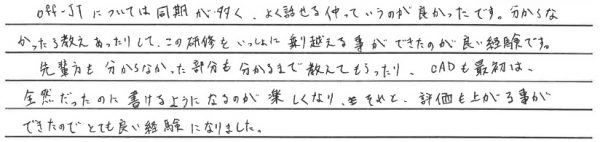 OFF-JTについては同期が多く、よく話せる仲っていうのが良かったです。分からな
かったら教えあったりして、この研修をいっしょに乗り越える事ができたのが良い経験です。
先輩方も分からなかった部分も分かるまで教えてもらったり、CADも最初は、
全然だったのに書けるようになるのが楽しくなり、それと、評価も上がる事が
できたのでとても良い経験になりました。